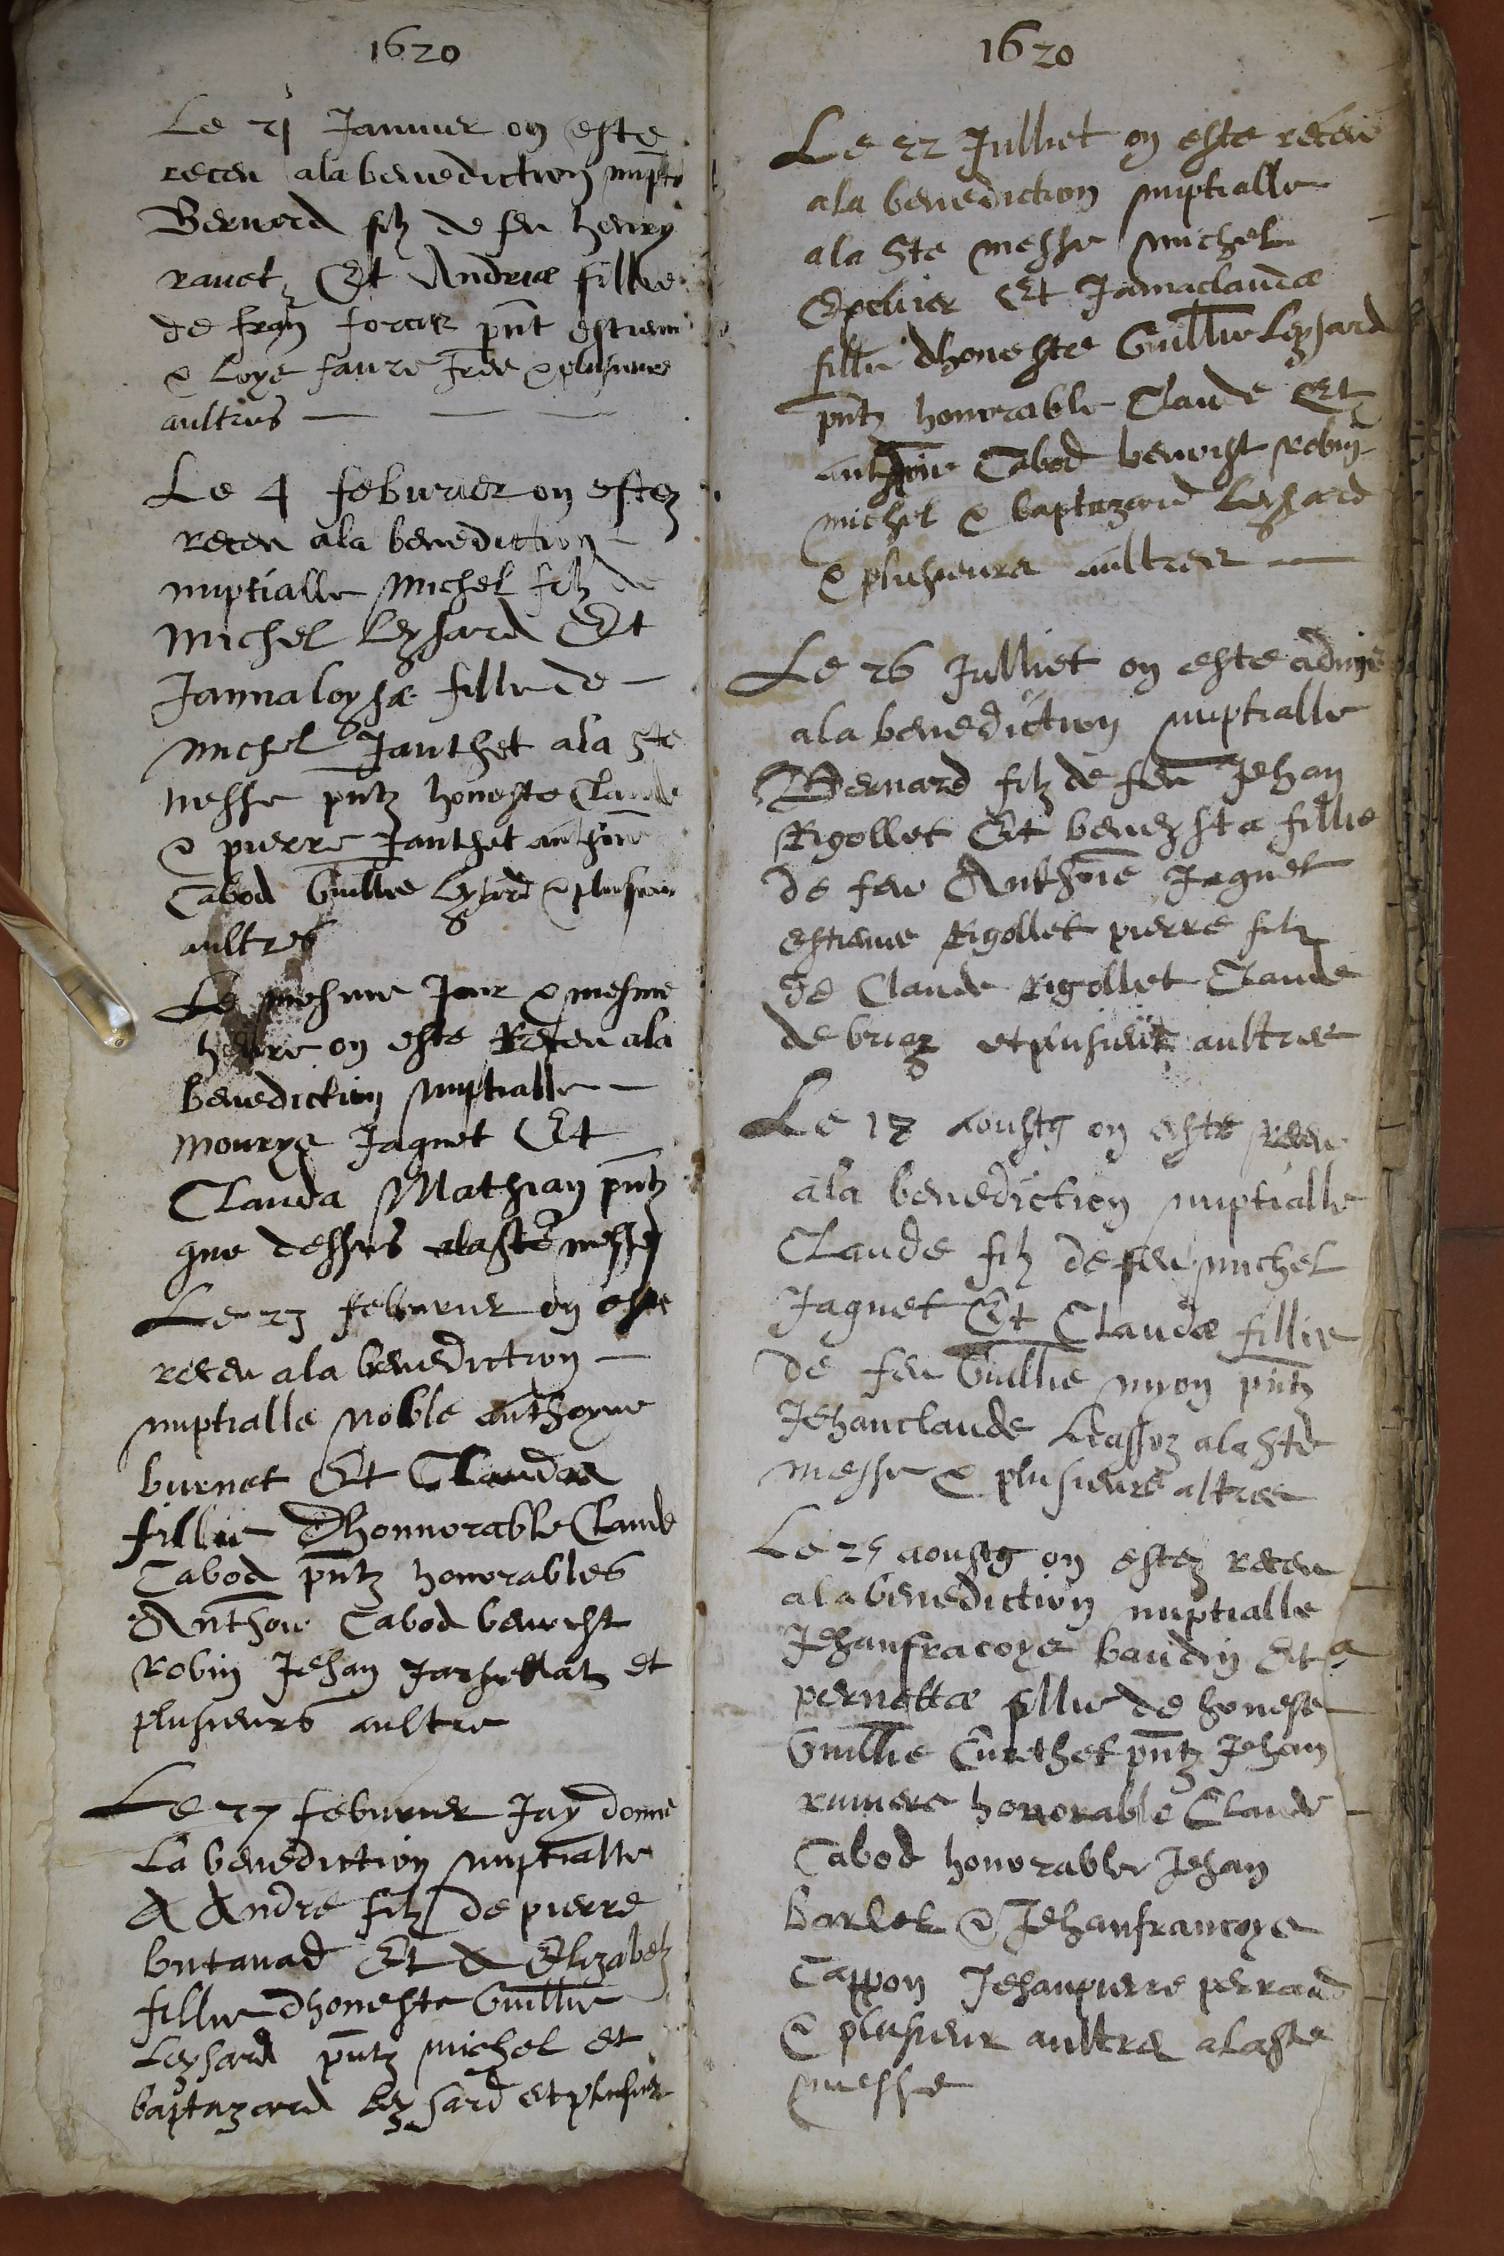 1620
Le 21 Januier on este
receu a la benediction nupt
Bernard filz de feu henry
rauet Et Andriæ fillie
de fran forcier pnt estienne
& loye faure frere & plusieurs
aultres
Le 4 feburier on estez
receu a la benediction
nuptialle Michel filz de
Michel leysard Et
Janna loysæ fillie de
michel Janthet a la ste
messe pntz honeste Claude
& pierre Janthet anthoine
Cabod Guillie leysard & plusieurs
aultres
Le mesme Jour & mesme
heure on este Receu a la
benediction nuptialle
mourys Jaquet Et
Clauda Mathian pntz
que dessus a la ste messe
Le 23 feburier on este
receu a la benediction
nuptialle noble anthoyne
burnet Et Claudæ
fillie Dhonnorable Claude
Cabod pntz honorables
Anthoie Cabod benoist
Robin Jehan et
plusieurs aultre
Le 27 feburier Jay donne
La benediction nuptialle
A Andre filz de pierre
butauad Et A Elizabetz
fillie dhoneste Guillie
Leysard pntz michel et
baptazard leysard et plusieur
1620
Le 22 Julliet on este receu
a la benediction nuptialle
a la Ste messe michel
Et Jannaclaudæ
fillie dhoneste Guillie Leysard
pntz honnorable Claude Et
anthoine Cabod benoist Robin
michel & baptazard Leysard
& plusieurs aultres
Le 26 Julliet on este admis
a la benediction nuptialle
Bernard filz de feu Jehan
Rigollet Et beneysta fillie
de feu Anthoie Jaquet
estienne Rigollet pierre filz
de Claude Rigollet Claude
de et plusieurs aultres
Le 18 aoustz on este receu
a la benediction nuptialle
Claude filz de feu michel
Jaquet Et Claudæ fillie
de feu Guillie myon pntz
Jehanclaude a la ste
messe & plusieurs altres
Le 25 aoustz on estez receu
a la benediction nuptialle
Jehanfracoys baudin Et a
pernettæ fillie de honeste
Guillie Curthet pntz Jehan
honorable Claude
Cabod honorable Jehan
barlet & Jehanfrancoys
Cappon Jehanpierre perraud
& plusieur aultres a la ste
messe